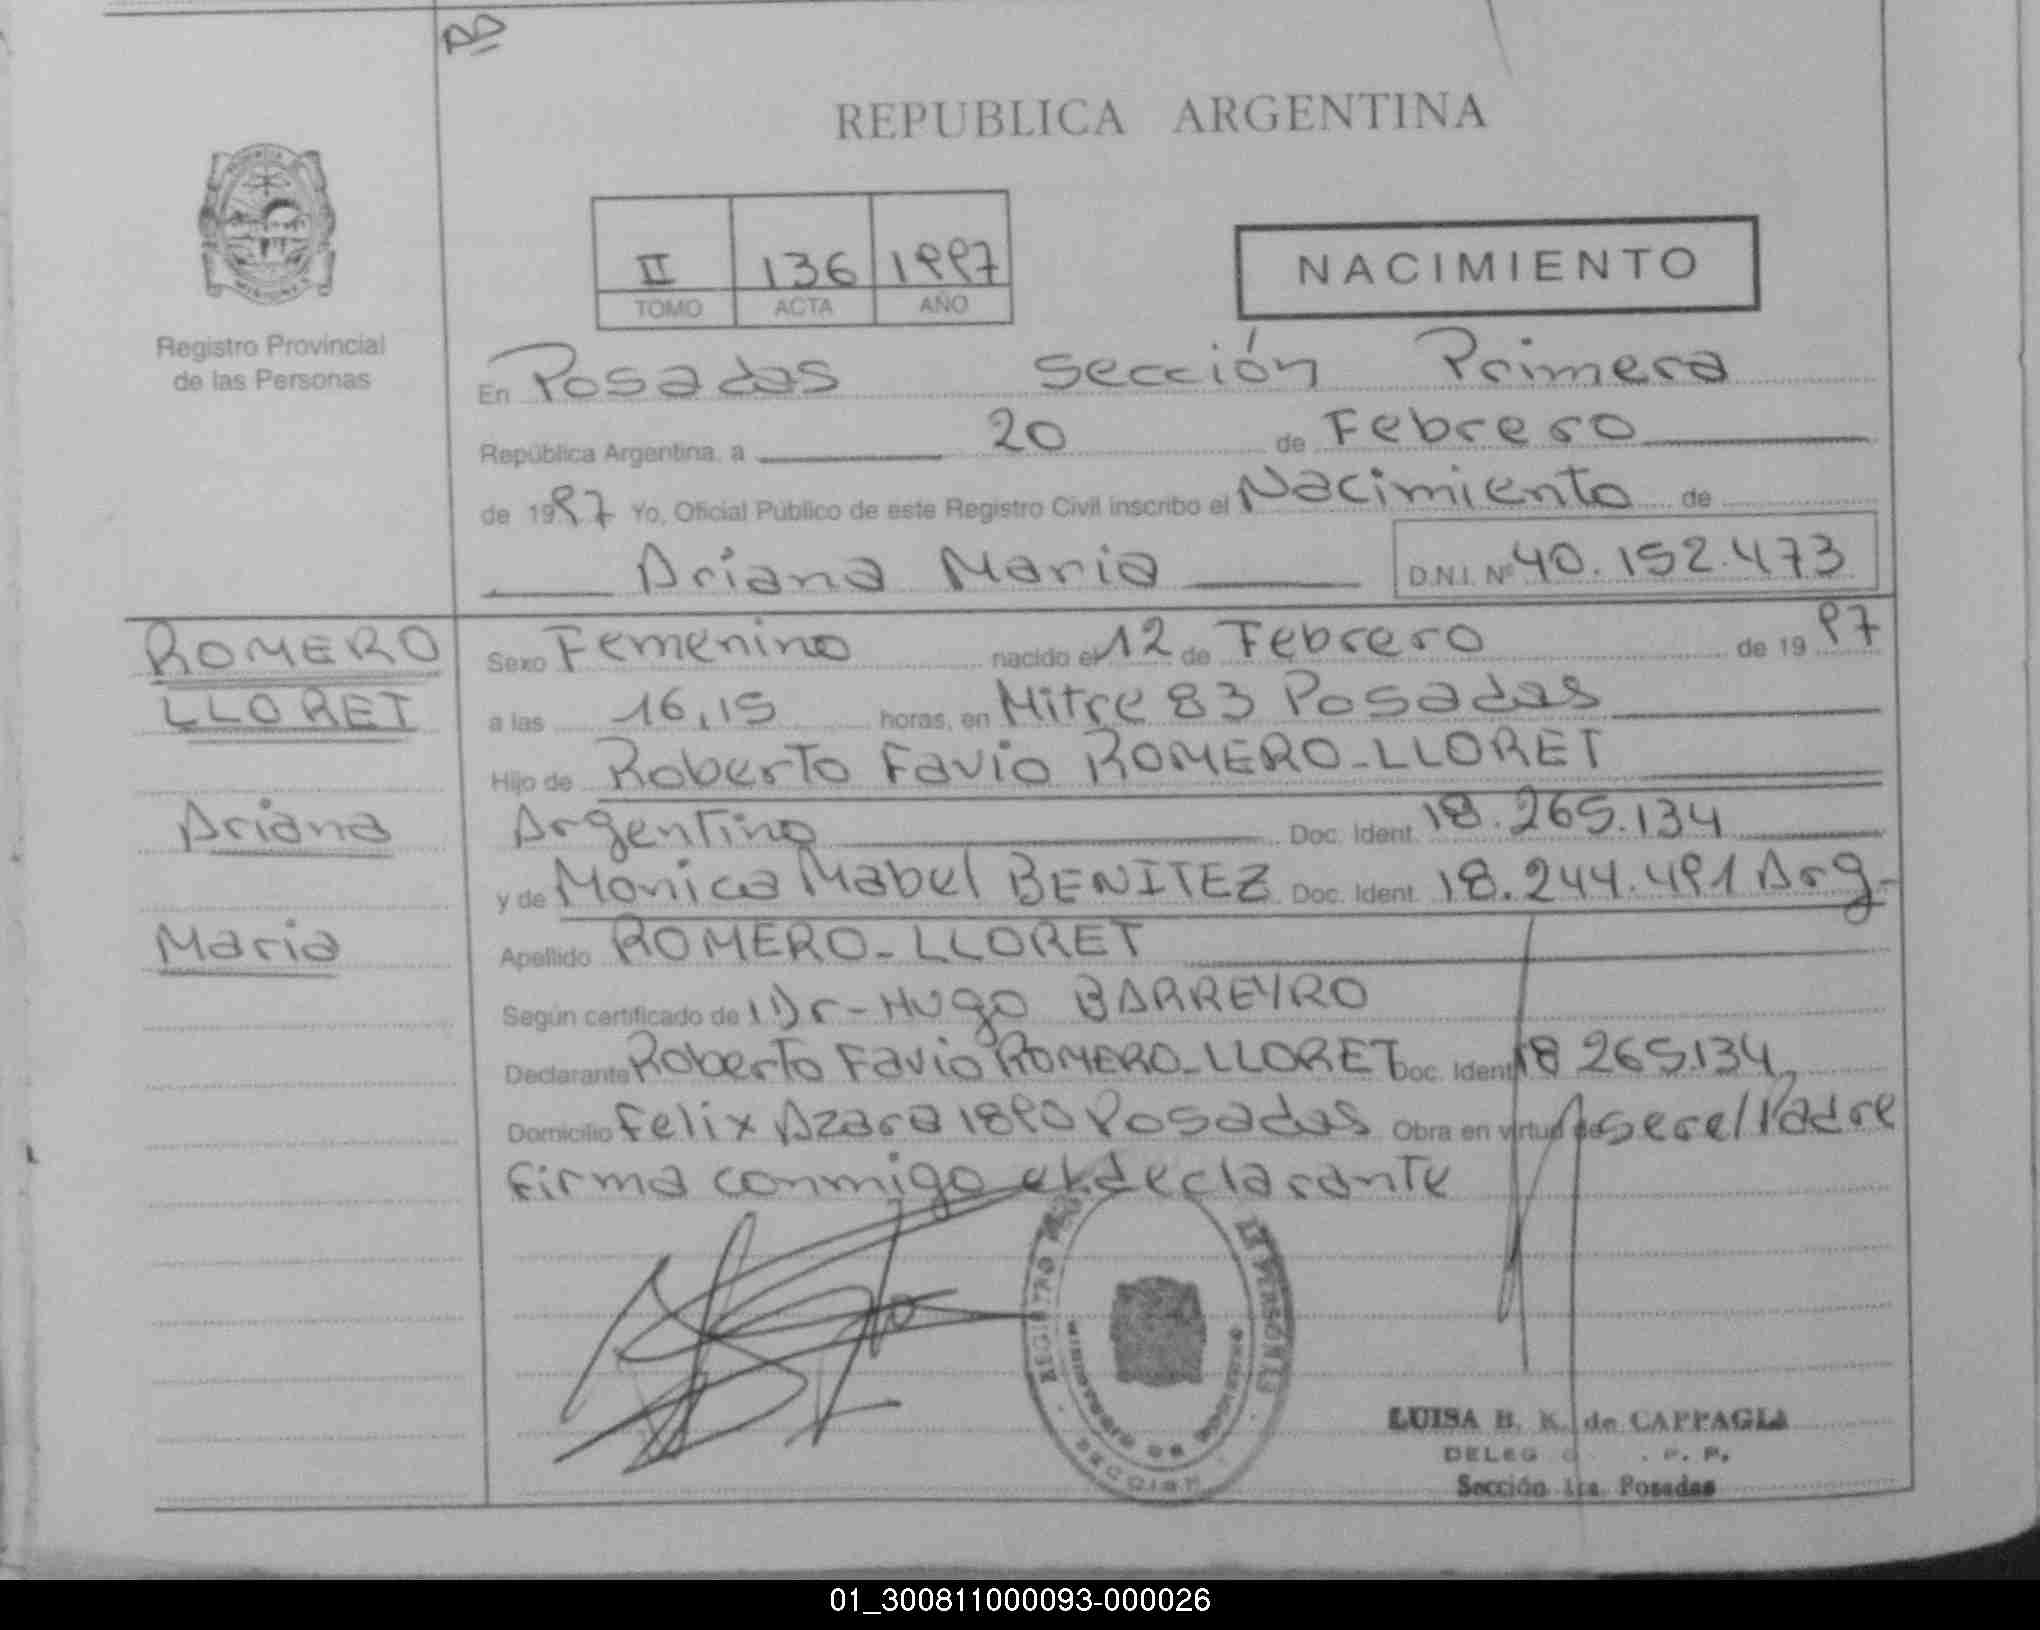 AD
REPUBLICA ARGENTINA
II 136 1997
TOMO ACTA AÑO
NACIMIENTO
Registro Provincial
de las Personas
En Posadas sección Primera
República Argentina, a 20 de Febrero
de 1997 Yo, Oficial Público de este Registro Civil inscribo el Nacimiento de
Ariana Maria D.N.I. Nº 40.152.473
ROMERO
LLORET
Ariana
Maria
Sexo Femenino nacido el 12 de Febrero de 1997
a las 16,15 horas, en Mitre 83 Posadas
Hijo de Roberto Favio ROMERO-LLORET
Argentino Doc. Ident. 18.265.134
y de Monica Mabel BENITEZ Doc. Ident. 18.244.491 Arg-
Apellido ROMERO-LLORET
Según certificado de Dr-Hugo BARREYRO
Declarante Roberto Favio ROMERO-LLORET Doc. Ident 18 265.134
Domicilio Felix Azara 1890 Posadas Obra en virtud de ser el Padre
firma conmigo el declarante
REGISTRO PERSONAS
SECCION
LUISA B. K. de CAPPAGLI
DELEG . P. P.
Sección 1ra. Posadas
01_300811000093-000026